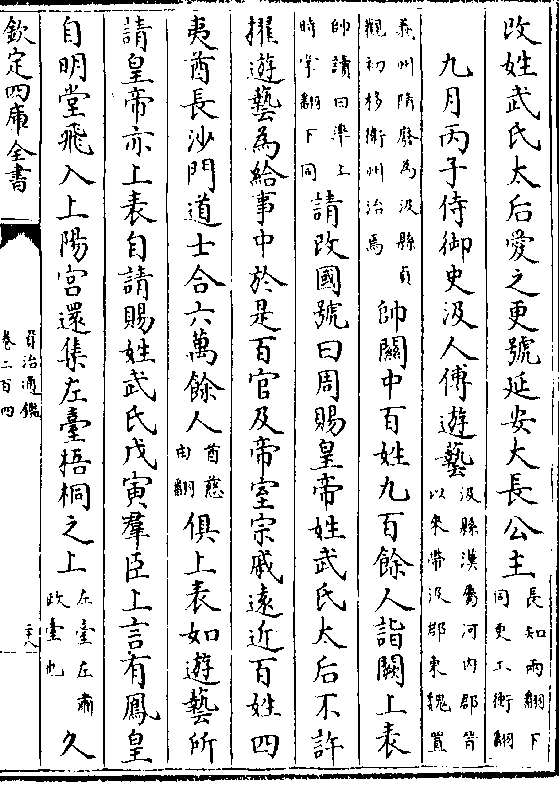 改姓武氏太后愛之更號延安大長公主長知兩翻下同更工衡翻
九月丙子侍御史汲人傅遊藝汲縣漢屬河內郡晉以來帶汲郡東魏置
義州隋廢為汲縣貞觀初移衛州治焉帥關中百姓九百餘人詣闕上表
帥讀曰率上時掌翻下同請改國號曰周賜皇帝姓武氏太后不許
擢遊藝為給事中於是百官及帝室宗戚遠近百姓四
夷酋長沙門道士合六萬餘人酋慈由翻俱上表如遊藝所
請皇帝亦上表自請賜姓武氏戊寅羣臣上言有鳳皇
自明堂飛入上陽宮還集左臺梧桐之上左臺左肅政臺也久
欽定四庫全書
資治通鑑
卷二百四
二十八